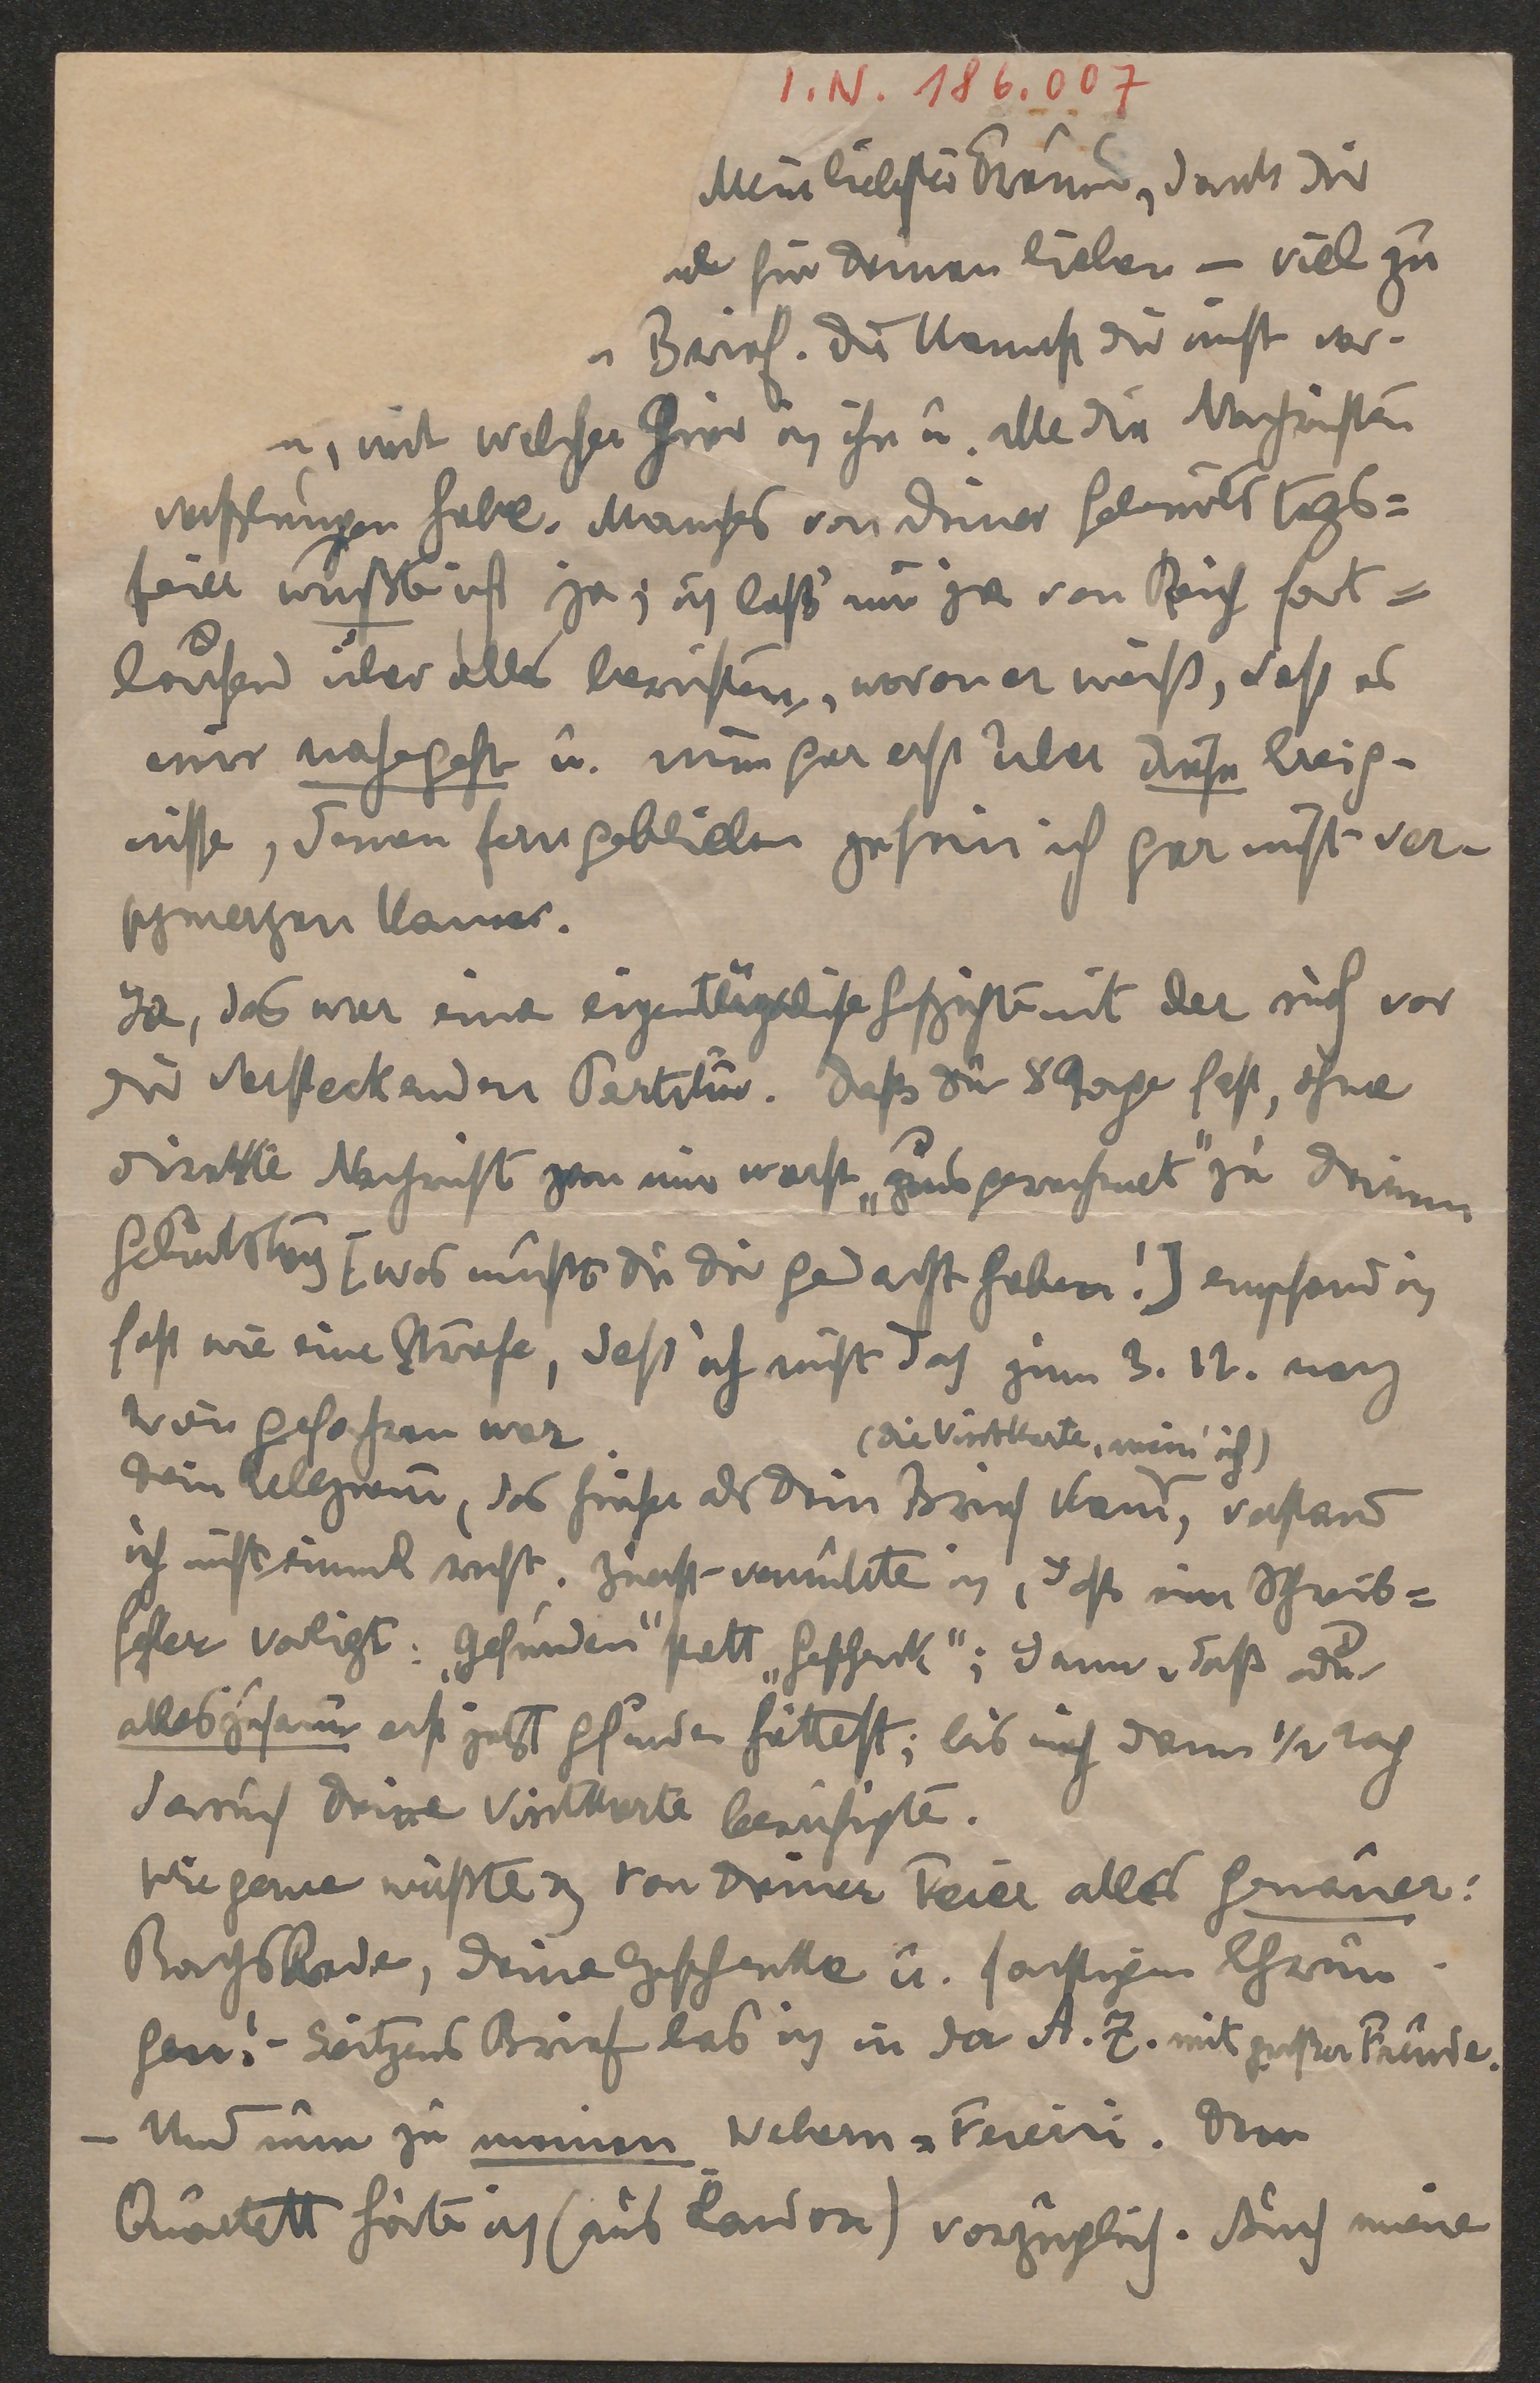 I.N. 186.007
Mein liebster Freund, dank Dir
für Deinen lieben – viel zu
n Brief. Du kannst Dir nicht vor-
n, mit welcher Gier ich ihn u. alle die Nachrichten
verschlungen habe. Manches von Deiner Geburtstags=
feier wußte ich ja; ich lass' mir ja von Reich fort=
laufend über alles berichten, wovon er weiß, daß es
mir nahegeht u. nun gar erst über diese Ereig-
nisse, denen ferngeblieben zu sein ich gar nicht ver-
schmerzen kann.
Ja, das war eine eigentümliche Geschichte mit der sich vor
Dir versteckenden Partitur. Daß Du 8 Tage fast, ohne
direkte Nachricht von mir warst „ausgerechnet" zu Deinem
Geburtstag [was mußt Du Dir gedacht haben!] empfand ich
fast wie eine Strafe, daß ich nicht doch zum 3. 12. nach
Wien gefahren war.
(die Visitkarte, mein' ich)
Dein Telegramm, das früher als Dein Brief kam, verstand
ich nicht einmal recht. Zuerst vermutete ich, daß ein Schreib=
fehler vorliegt: „Gefunden" statt „Geschenk"; dann, daß Du
alles zusamm erst jetzt gefunden hättest; bis mich dann 1/2 Tag
darauf Deine Visitkarte beruhigte.
Wie gerne wüßte ich von Deiner Feier alles genauer:
Bachs Rede, Deine Geschenke u. sonstigen Ehrun-
gen! – Seitzens Brief las ich in der A. Z. mit großer Freude.
– Und nun zu meinen Webern=Feiern. Dein
Quartett hörte ich (aus London) vorzüglich. Auch meine